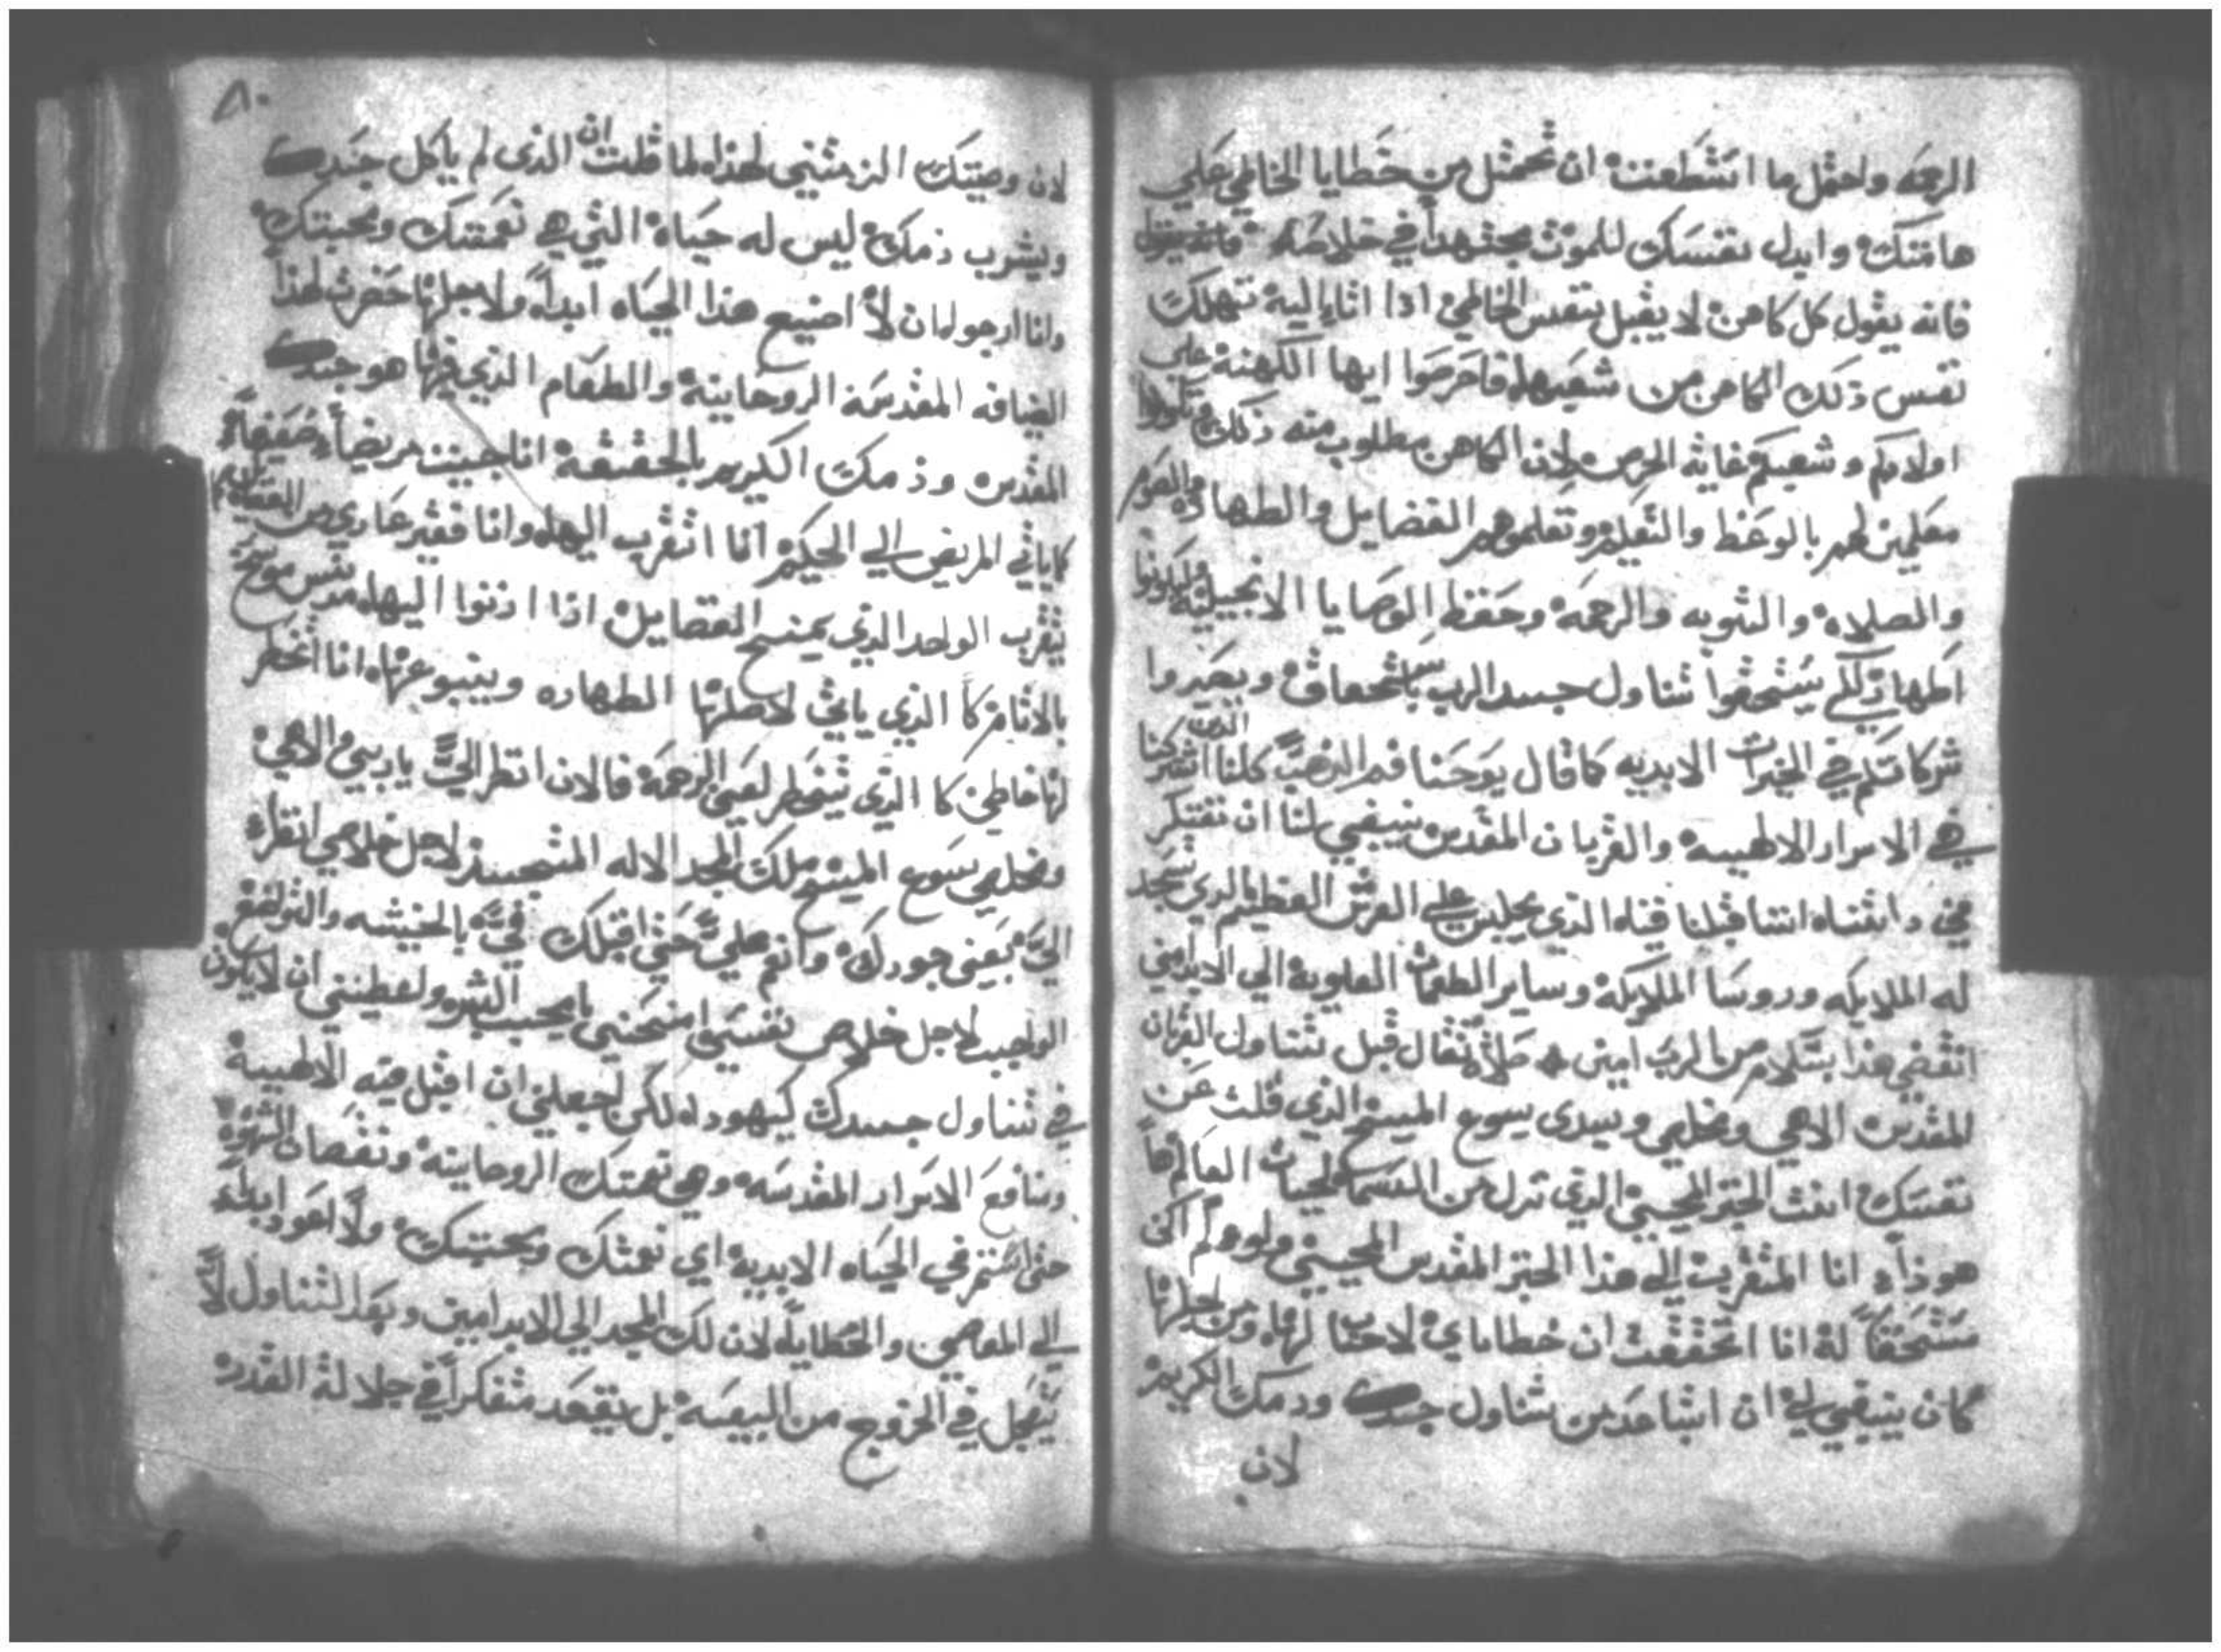 الرحمه واحمل ما استطعت ان تحمل من خطايا الخاطي علي
هامتك وابدل نفسك للموت مجتهداً في خلاصه فانه يقول
فانه يقول كل كاهن لا يقبل بنفس الخاطي اذا اتاء اليه تهلك
نفس ذلك الكاهن من شعبها فاحرصوا ايها الكهنة علي
اولادكم وشعبكم غاية الحرص لان الكاهن مطلوب منه ذلك وتكونوا
معلمين لهم بالوعظ والتعليم وتعلموهم الفضايل والطهاره والصوم
والصلاه والتوبه والرحمة وحفظ الوصايا الانجيلية وليكونوا
اطهار لكي يستحقوا تناول جسد الرب باستحقاق ويصيروا
شركا معكم في الخيرات الابديه كما قال يوحنا فم الذهب كلنا الذين اشتركنا
في الاسرار الالهيية والقربان المقدس ينبغي لنا ان نفتكر
في داتناه اننا قبلنا فيناه الذي يجلس علي العرش العظيم الذي تسجد
له الملايكه وروسا الملايكة وساير الطغمات العلوية الي الابد امين
انقضي هذا بسلام من الرب امين صلاة تقال قبل تناول القربان
المقدس الاهي ومخلصي وسيدي يسوع المسيح الذي قلت عن
نفسك انت الخبز المحيي الذي نزل من السما لحيات العالم ها
هوذا انا المتقرب الي هذا الخبز المقدس المحيي ولو لم اكن
مستحقاً له انا اتحققت ان خطاياي لا حساب لها ومن اجلها
كان ينبغي لي ان اتباعد من تناول جسدك ودمك الكريم
لان
٨٠
لان وصيتك الزمتني لهذا لما قلت ان الذي لم ياكل جسدك
ويشرب دمك ليس له حياة التي هي نعمتك ومحبتك
وانا ارجو ان لا اضيع هذا الحياه ابداً ولاجلها حضرت لهذا
الضيافه المقدسة الروحانية والطعام الذي فيها هو جسدك
المقدس ودمك الكريم بالحقيقة انا جيت مريضاً ضعيفاً
كما ياتي المريض الي الحكيم انا اتقرب اليها وانا فقير عاري من الفضايل
يتقرب الواحد الذي يمنح الفضايل اذا ادنوا اليها مدنس موسخ
بالاثام كما الذي ياتي لاصلها الطهاره وينبوعها انا اتخطر
لها خاطي كما الذي يتخطر لعين الرحمة فالان انظر اليّ يا ربي والاهي
ومخلصي يسوع المسيح ملك المجد الاله المتجسد لاجل خلاصي انظر
اليّ بعين جودك وانعم عليّ حتي اقبلك فيّ بالخشيه والتواضع
الواجب لاجل خلاص نفسي امنحني يا محب البشر ولتعطيني ان لا يكون
في تناول جسدك كيهودا لكن لتجعلني ان اقبل منه الالهيية
ومنافع الاسرار المقدسه وهي نعمتك الروحانية ونقصان الشهوه
حتي استمر في الحياه الابدية اي نعمتك ومحبتك ولا اعود ابداً
الي المعاصي والخطايا لان لك المجد الي الابد امين وبعد التناول لا
يتعجل في الخروج من البيعه بل يقعد متفكراً في جلالة القدر